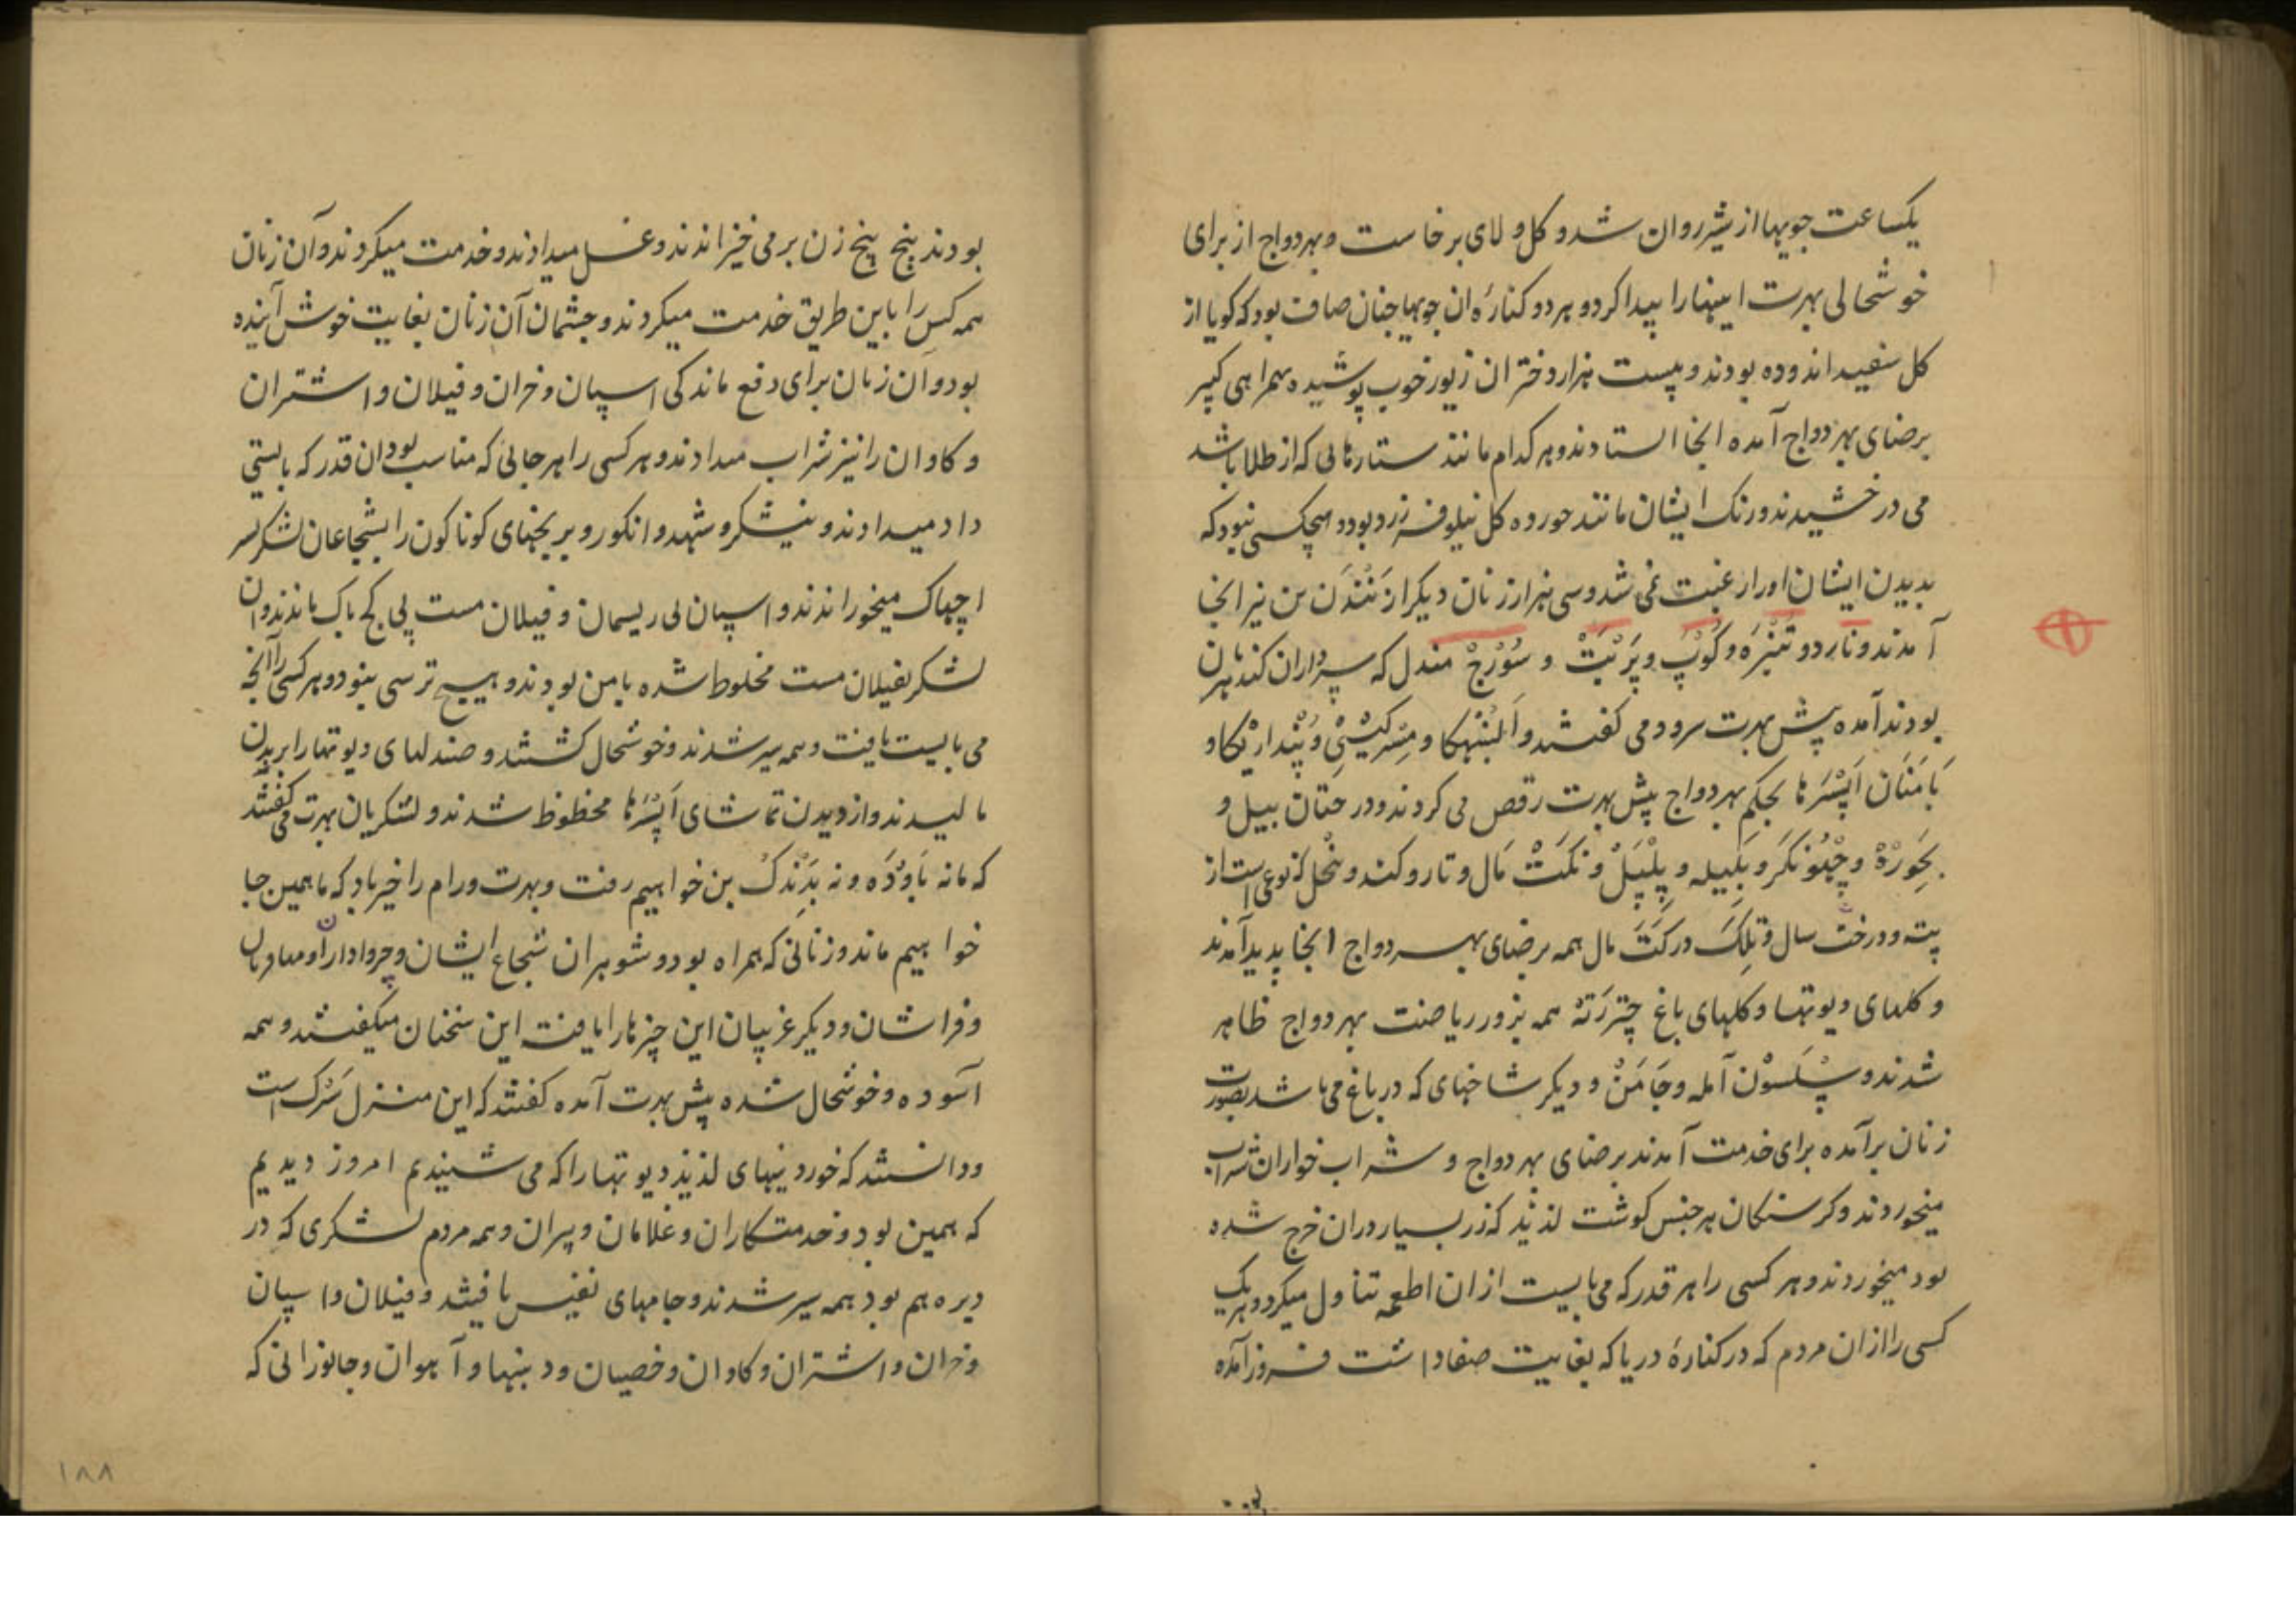 یکساعت جویها از شیر روان شد و کل و لای برخاست و بهردواج از برای
خوشحالی بهرت اینهارا پیدا کرد و هر دو کنارهٔ ان جویها چنان صاف بود که کویا از
کل سفید اندوده بودند و بیست هزار دختران زیور خوب پوشیده همراهی کپیر
برضای بهردواج آمده انجا استادند و هر کدام مانند ستارهائی که از طلا باشد
می درخشیدند و رنک ایشان مانند خورده کل نیلوفر زرد بود و هیچکسی نبود که
بدیدن ایشان او را رغبت نمی شد و سی هزار زنان دیکر از نَنْدَن بن نیز انجا
آمدند و نارد و تُنْبَرَه و کُوْپ و پَرْبَتْ و سُوْرَجْ مندل که سرداران کندهربان
بودند آمده پیش بهرت سرود می کفتند و اَلَنْبُهکا و مِسْرکیْسِی و پُنْدارْیکا و
بَامَنَان اَپْسَرَها بحکم بهردواج پیش بهرت رقص می کردند و درختان بیل و
و بلیله و پِپْپَلْ و نکَتْ مَال و تار و کند و نخل که نوعی است از
پته و درخت سال و تِلِکَ در کَتَ مال همه برضای بهردواج انجا پدید آمدند
و کلهای دیوتها و کلهای باغ چِتَررَتهَ همه بزور ریاضت بهردواج ظاهر
شدند و سِسْپُون آمله و جَامَنْ و دیکر شاخهای که در باغ می باشد بصورت
زنان برآمده برای خدمت آمدند برضای بهردواج و شراب خواران شراب
میخوردند و کرسنکان هر جنس کوشت لذیذ که زر بسیار دران خرج شده
بود میخوردند و هر کسی را هر قدر که می بایست ازان اطعمه تناول میکرد و هر یک
کسی را ازان مردم که در کنارهٔ دریا که بغایت صفا داشت فروز آمده
بودند پنج پنج زن بر می خیزاندند و غسل میدادند و خدمت میکردند و آن زنان
همه کس را باین طریق خدمت میکردند و چشمان آن زنان بغایت خوش آینده
بود و آن زنان برای دفع ماندکی اسپان و خران و فیلان و اشتران
و کاوان را نیز شراب میدادند و هر کسی را هر جائی که مناسب بود ان قدر که بایستی
داد میدادند و نیشکر و شهد و انکور و برنجهای کوناکون را بشجاعان لشکر
اچهاک میخوراندند و اسپان بی ریسمان و فیلان مست بی کجباک ماندند و ان
لشکر بفیلان مست مخلوط شده بامن بودند و هیچ ترسی نبود و هر کسی را آنچه
می بایست یافت و همه سیر شدند و خوشحال کشتند و صندلهای دیوتها را بر بدن
مالیدند و از دیدن تماشای اَپْسَرَها محظوظ شدند و لشکریان بهرت می کفتند
که ما نه باوُدَه و نه بَدَنْدک بن خواهیم رفت و بهرت و رام را خیر باد که ما همین جا
خواهیم ماند و زنانی که همراه بود و شوهران شجاع ایشان و چرواداران و
و فراشان و دیکر غریبان این چیزها را یافته این سخنان میکفتند و همه
آسوده و خوشحال شده پیش بهرت آمده کفتند که این منزل سَرْک است
و دانستند که خوردنیهای لذیذ دیوتها را که می شنیدم امروز دیدیم
که همین بود و خدمتکاران و غلامان و پسران و همه مردم لشکری که در
دیره هم بود همه سیر شدند و جامهای نفیس یافتند و فیلان و اسپان
و خران و اشتران و کاوان و خصیان و دنبها و آهوان و جانورانی که
۱۸۸